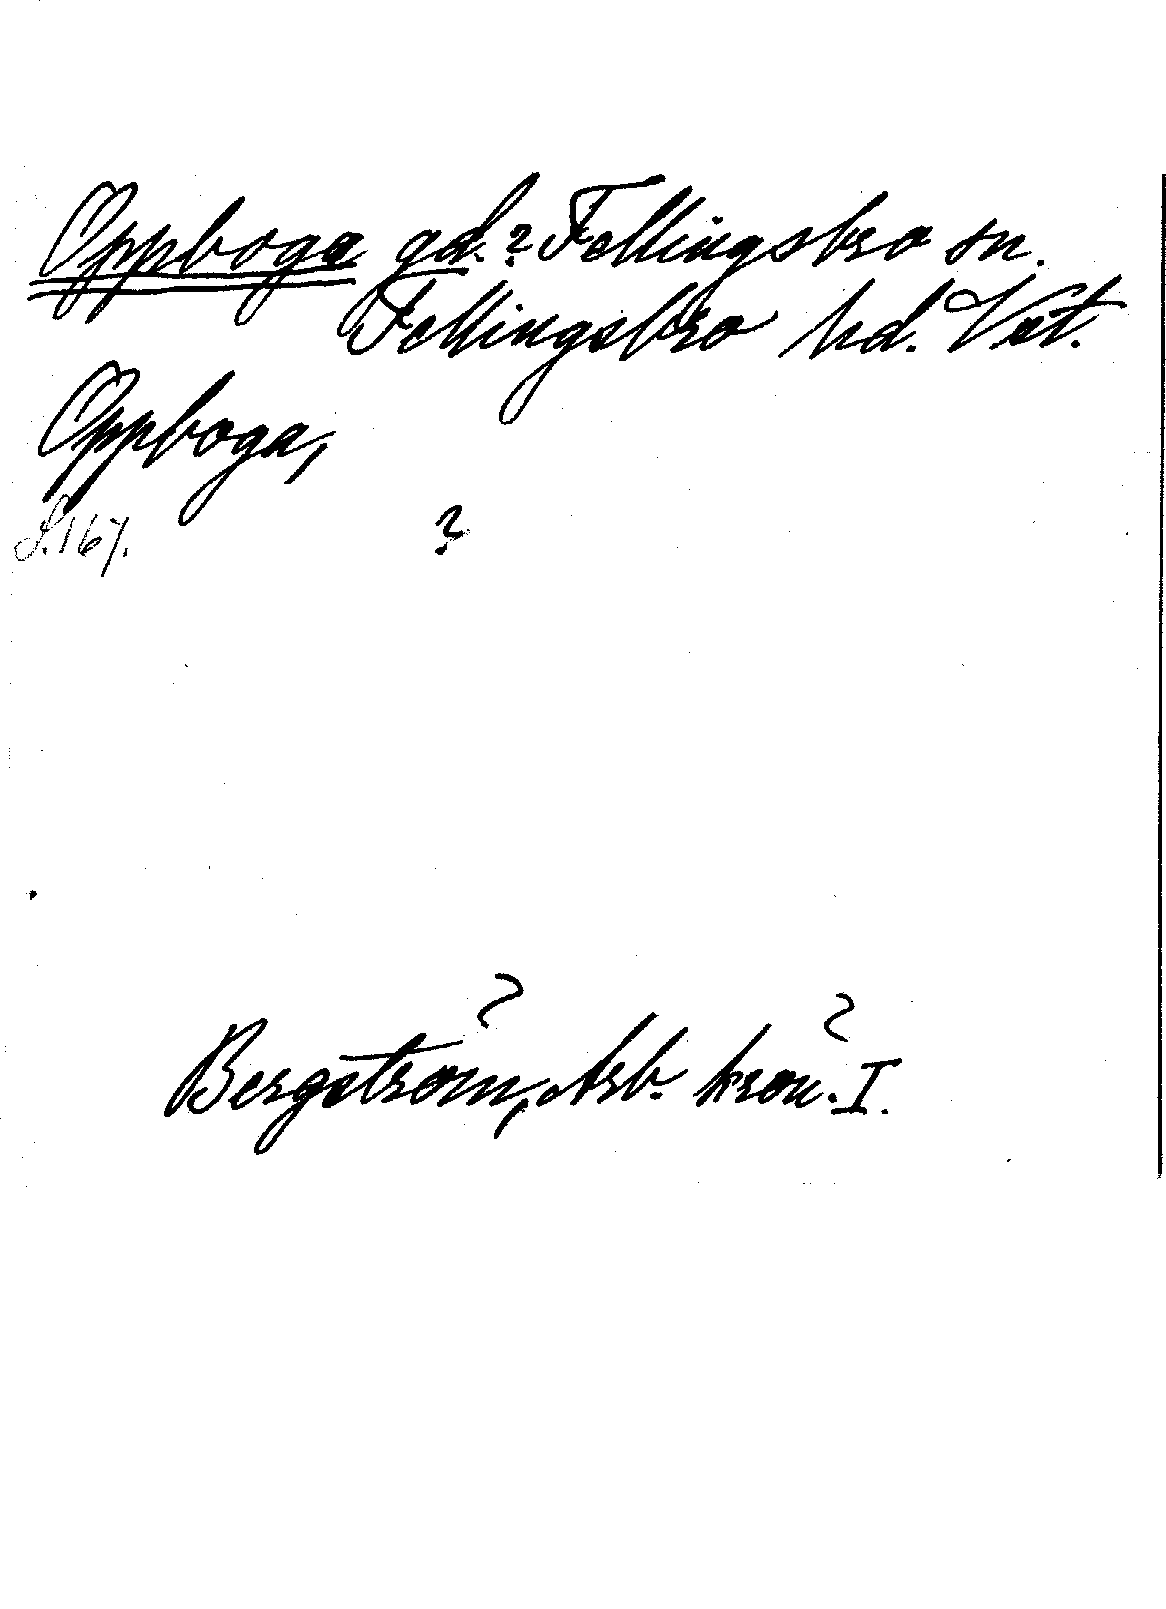 Oppboga gd.? Fellingsbro sn.
Fellingsbro hd. Vstm.
Oppboga,
S. 167.
?
Bergström, Arb. krön. I.